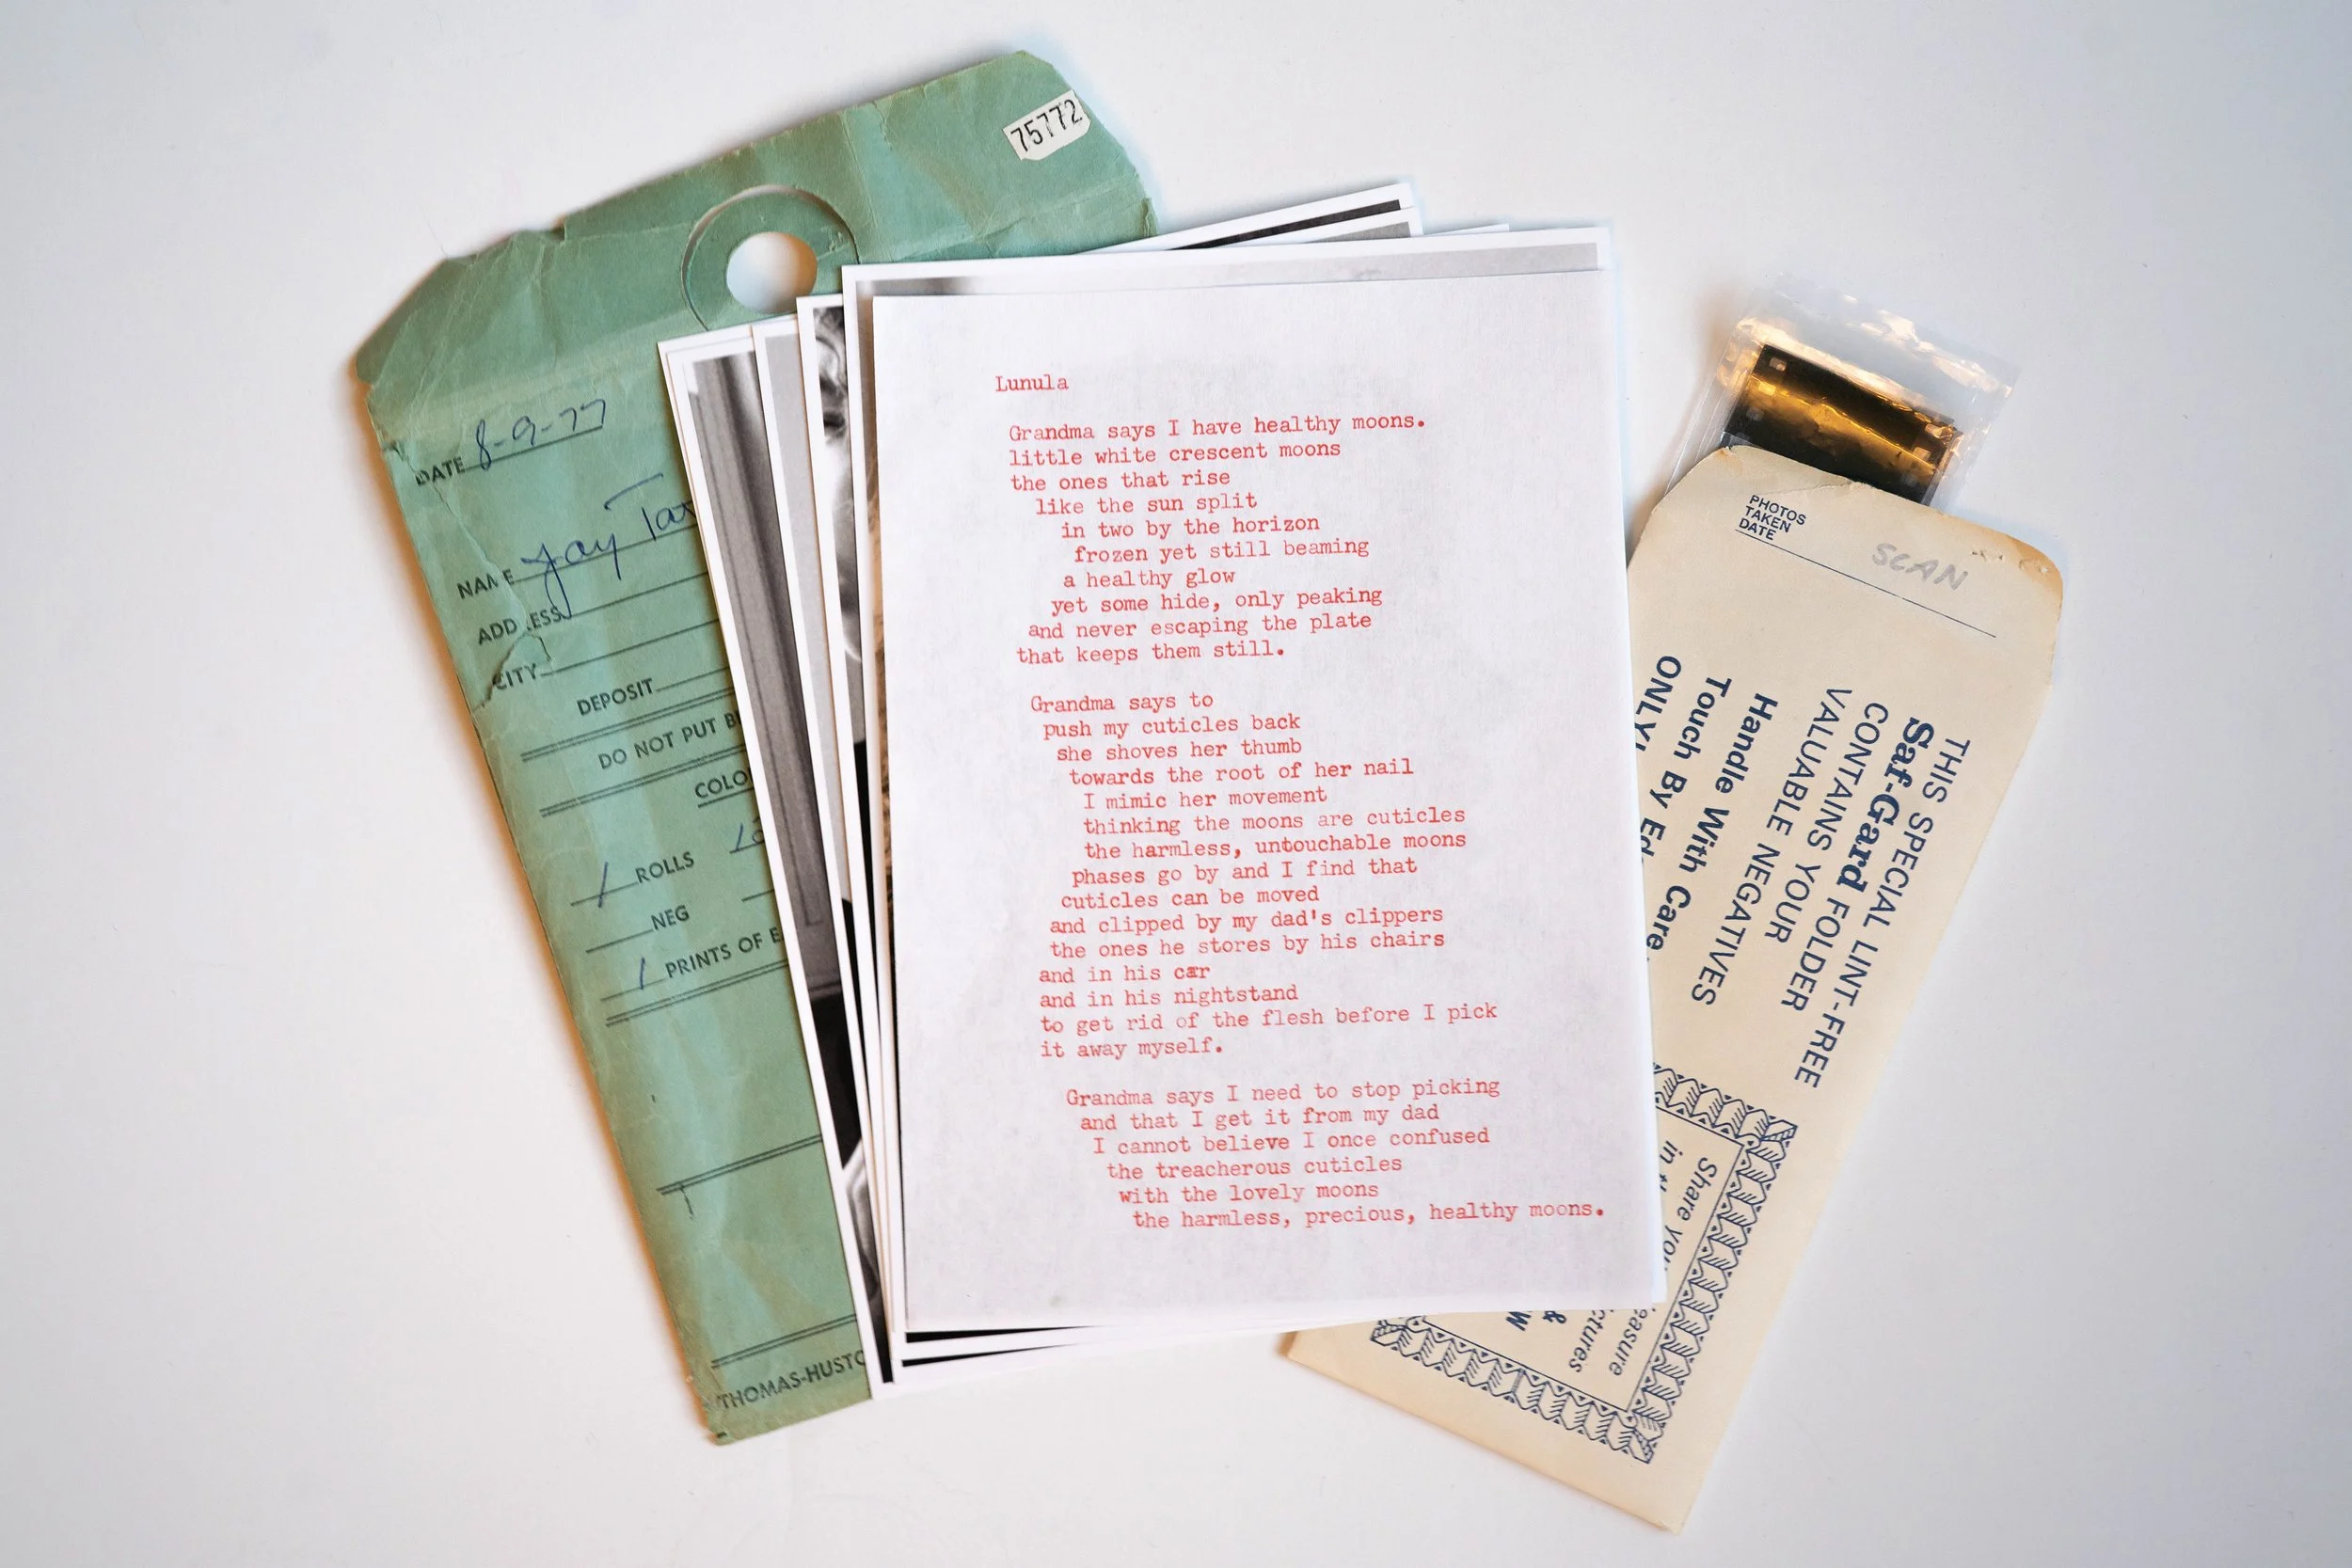 75772
DATE 8-9-77
NAME Jay
ADDRESS
CITY
DEPOSIT
DO NOT PUT
1 ROLLS
NEG
1 PRINTS OF
Lunula
Grandma says I have healthy moons.
little white crescent moons
the ones that rise
like the sun split
in two by the horizon
frozen yet still beaming
a healthy glow
yet some hide, only peaking
and never escaping the plate
that keeps them still.
Grandma says to
push my cuticles back
she shoves her thumb
towards the root of her nail
I mimic her movement
thinking the moons are cuticles
the harmless, untouchable moons
phases go by and I find that
cuticles can be moved
and clipped by my dad's clippers
the ones he stores by his chairs
and in his car
and in his nightstand
to get rid of the flesh before I pick
it away myself.
Grandma says I need to stop picking
and that I get it from my dad
I cannot believe I once confused
the treacherous cuticles
with the lovely moons
the harmless, precious, healthy moons.
PHOTOS
TAKEN
DATE
SCAN
THIS SPECIAL LINT-FREE
Saf-Gard FOLDER
CONTAINS YOUR
VALUABLE NEGATIVES
Handle With Care
Touch By
Share
in
&